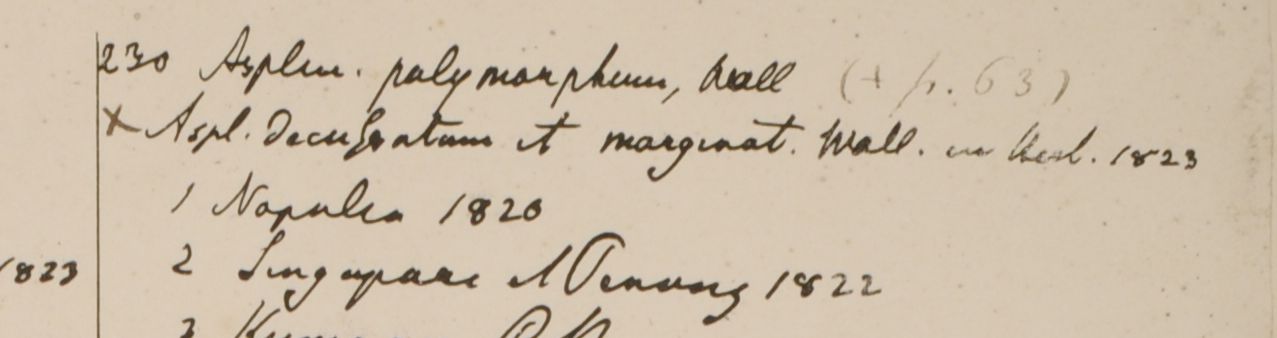 230 Asplen. polymorphum, Wall (+ p. 63)
+ Aspl. decussatum et marginat. Wall. in Herb. 1823
1 Napalia 1820
2 Singapore et Penang 1822
1823
3